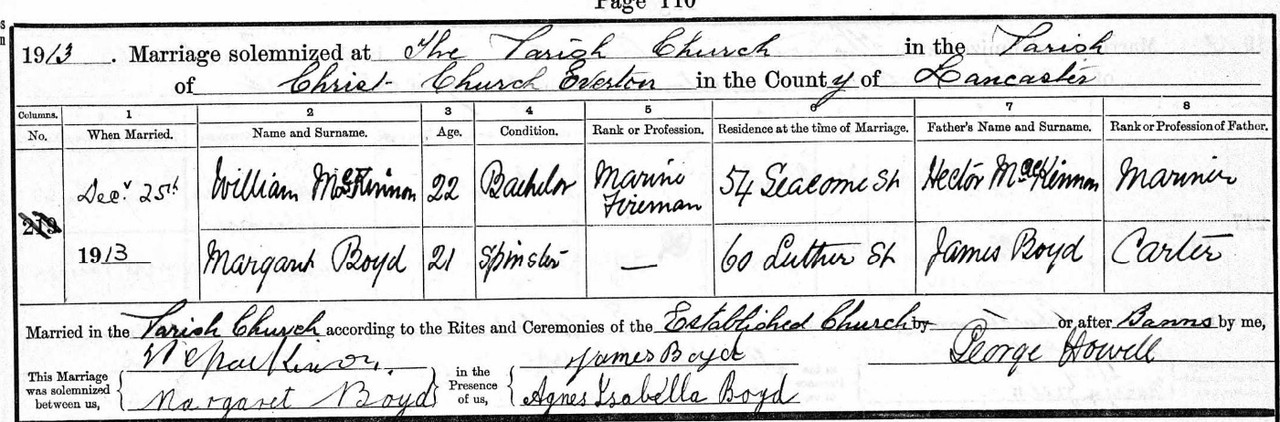 Page 110
1913. Marriage solemnized at The Parish Church in the Parish
of Christ Church Everton in the County of Lancaster
Columns. 1 2 3 4 5 6 7 8
No. When Married. Name and Surname. Age. Condition. Rank or Profession. Residence at the time of Marriage. Father's Name and Surname. Rank or Profession of Father.
219 Decr 25th William McKinnon 22 Bachelor Marine Fireman 54 Seacome St Hector MacKinnon Mariner
1913 Margaret Boyd 21 Spinster — 60 Luther St James Boyd Carter
Married in the Parish Church according to the Rites and Ceremonies of the Established Church by — or after Banns by me,
This Marriage was solemnized between us, in the Presence of us, James Boyd George Howell
Margaret Boyd Agnes Isabella Boyd